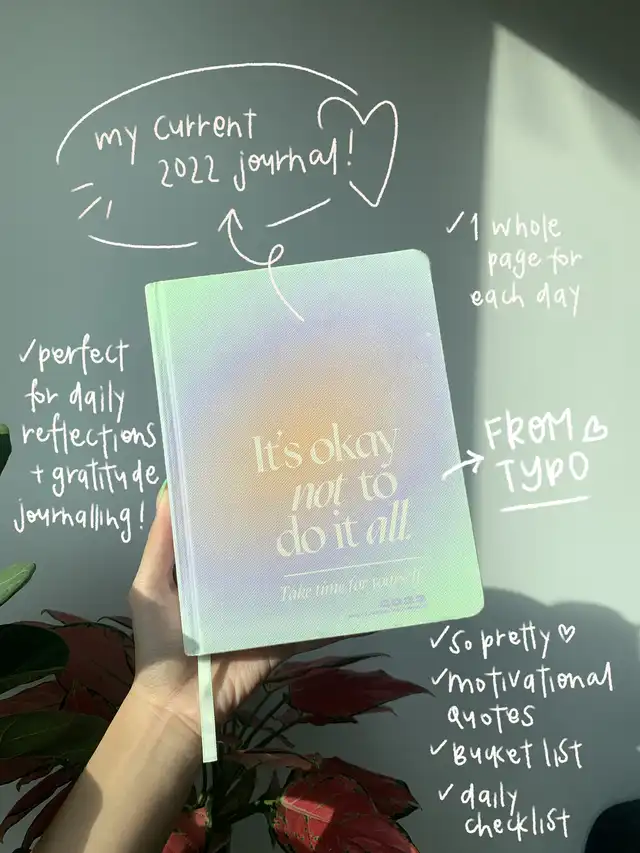 my current
2022 journal!
✓1 whole
page for
each day
✓perfect
for daily
reflections
+ gratitude
journalling!
It's okay
not to
do it all.
Take time for yourself.
2022
FROM
TYPO
✓so pretty ♡
✓motivational
quotes
✓bucket list
✓daily
checklist